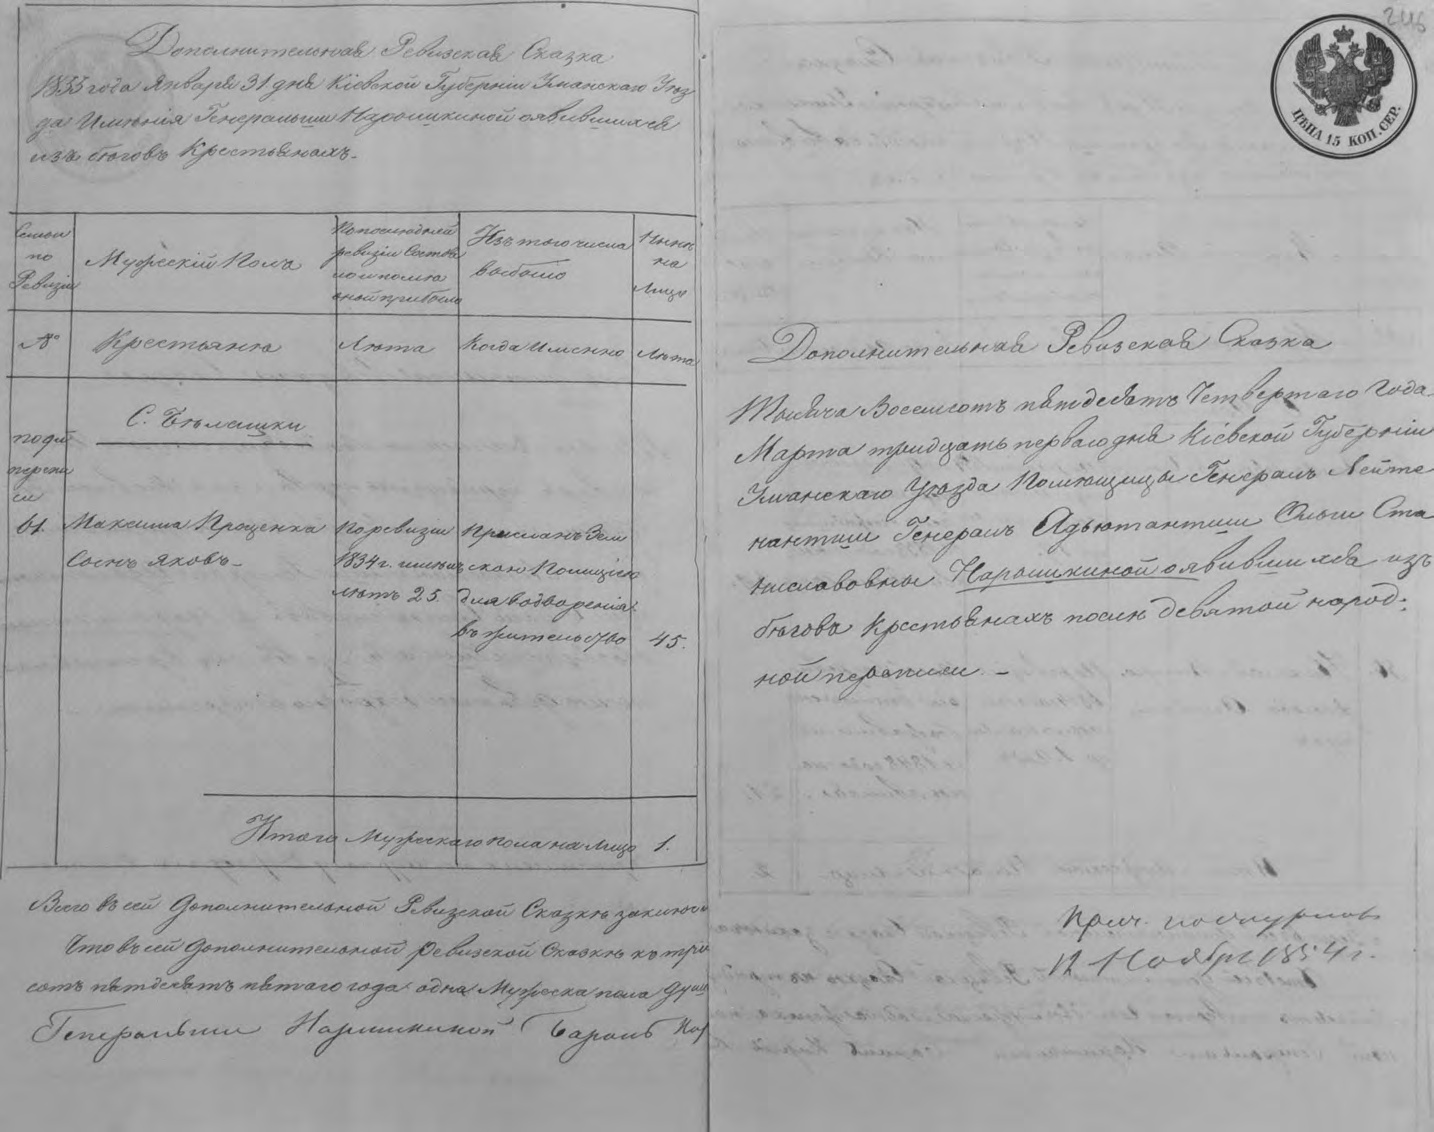 Дополнительная Ревизская Сказка
1855 года Января 31 дня Кіевской Губерніи Уманскаго Уѣз
да Имѣнія Генеральши Нарышкиной оявившихся
изъ бѣговъ Крестьянахъ.
Семьи
по
Ревизіи
Мужескій Полъ
По последней
ревизіи состоя
ло и после
оной прибыло
Изъ того числа
выбыло
Нынѣ
на
Лицо
№
Крестьяне
Лѣта
Когда Именно
Лѣта
С. Бѣлашки
по 9й
переписи
61.
Максима Проценка
Сынъ Яковъ
По ревизіи
1834 г. имѣлъ
лѣтъ 25.
Присланъ Зем
скою Полиціею
для водворенія
въ жительство
45.
Итого Мужескаго пола на Лицо 1.
Всего въ сей Дополнительной Ревизской Сказкѣ заключ
Что въ сей Дополнительной Ревизской Сказкѣ
сотъ пятдесятъ пятаго года одна Мужеска пола душ
Генеральши Нарышкиной Баронъ
ЦѢНА 15 КОП. СЕР.
Дополнительная Ревизская Сказка
Тысяча Восемсотъ пятдесятъ Четвертаго Года
Марта тридцать перваго дня Кіевской Губерніи
Уманскаго Уѣзда Помѣщицы Генералъ Лейте
нантши Генералъ Адъютантши Ольги Ста
ниславовны Нарышкиной оявившихся изъ
бѣговъ Крестьянахъ после девятой народ:
ной переписи
12 Ноября 1854 г.